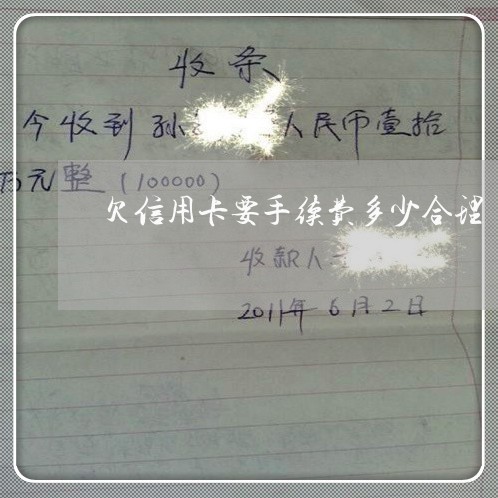 收条
今收到孙 人民币壹拾
万元整（100000）
欠信用卡要手续费多少合理
收款人
2011年6月2日